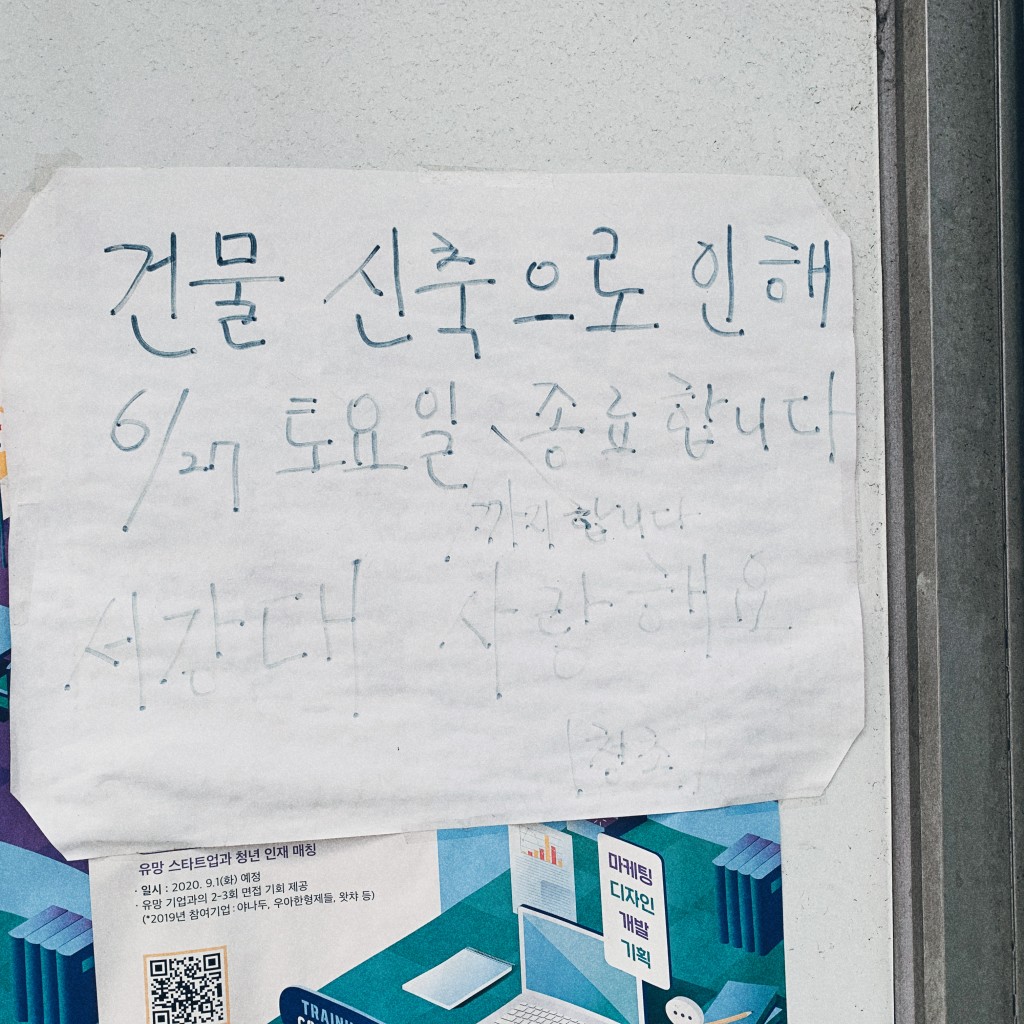 건물 신축으로 인해
6/27 토요일 종료합니다
까지 합니다
서강대 사랑해요
유망 스타트업과 청년 인재 매칭
· 일시 : 2020. 9.1(화) 예정
· 유망 기업과의 2-3회 면접 기회 제공
(*2019년 참여기업 : 야나두, 우아한형제들, 왓챠 등)
마케팅
디자인
개발
기획